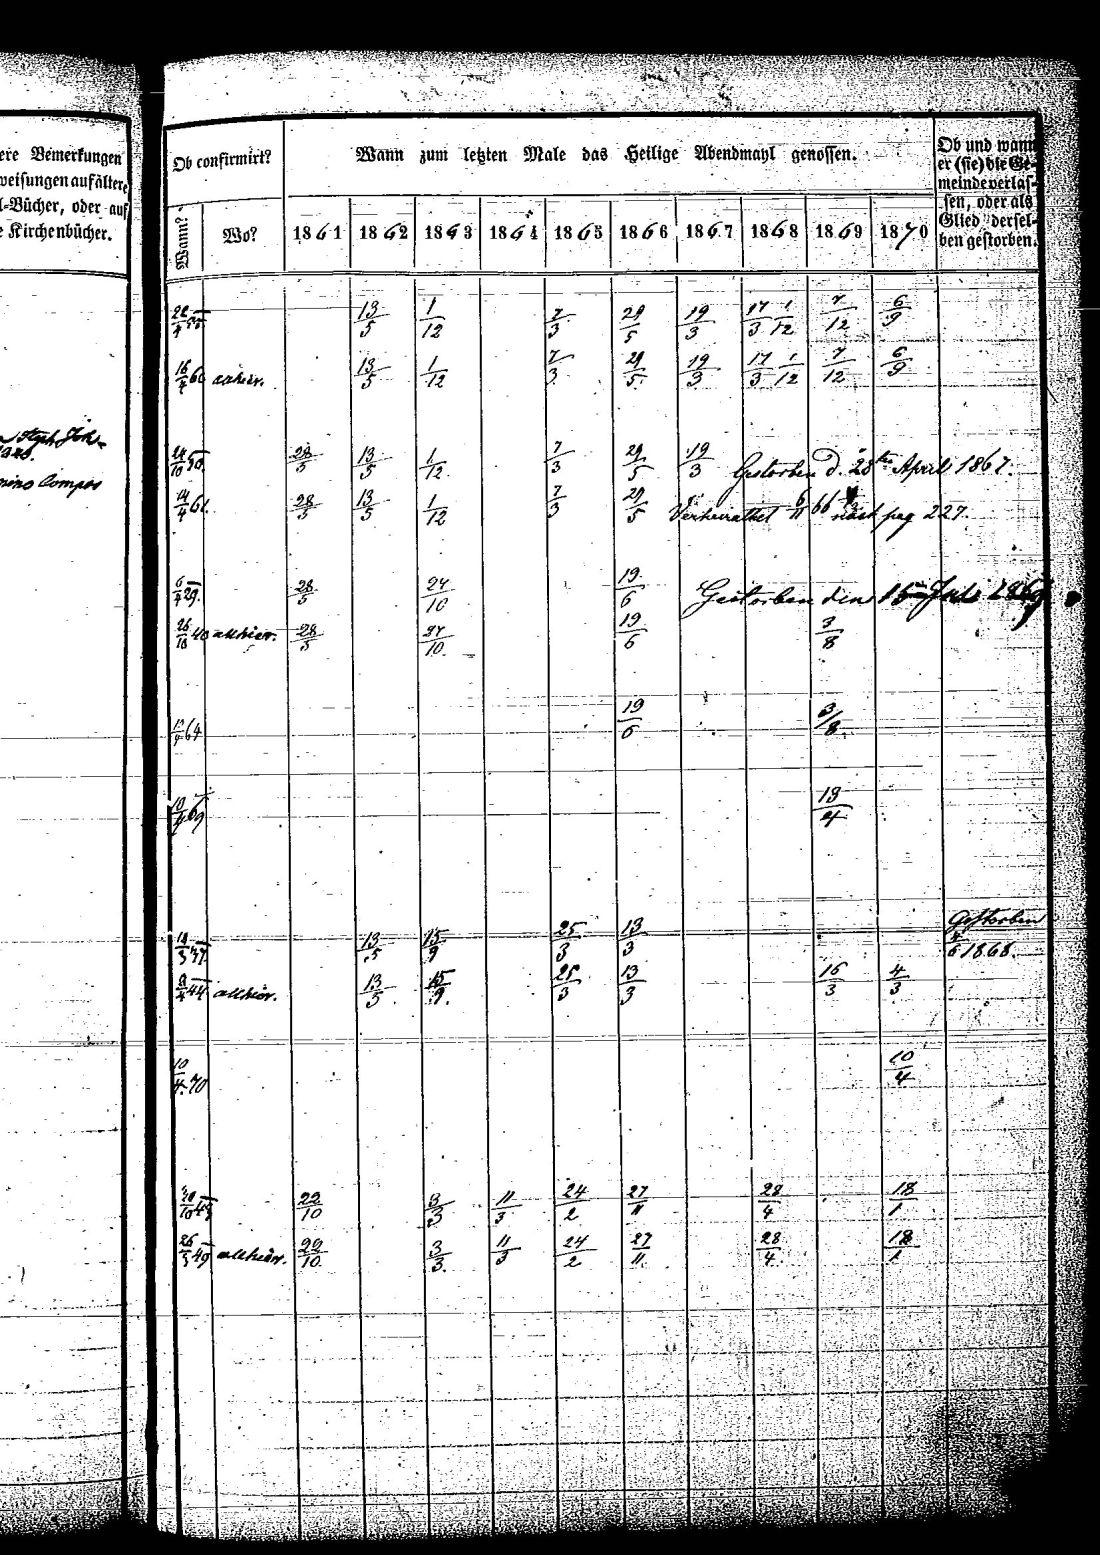 ere Bemerkungen
weisungen auf ältere
l-Bücher, oder auf
e Kirchenbücher.
Ob confirmirt?
Wann zum letzten Male das Heilige Abendmahl genossen.
Ob und wann
er (sie) die Ge-
meinde verlas-
sen, oder als
Glied dersel-
ben gestorben.
Wann? Wo? 1861 1862 1863 1864 1865 1866 1867 1868 1869 1870
13/5 1/12 7/3 29/5 19/3 17/3 1/12 7/12 6/9
16/4 60 allhier. 13/5 1/12 7/3 29/5 19/3 17/3 1/12 7/12 6/9
24/10 28/5 13/5 1/12 7/3 29/5 19/3 Gestorben d. 28ten April 1867.
14/4 61. 28/5 13/5 1/12 7/3 29/5 Verheirathet 6/11 66 pag 227.
6/4 29. 28/5 27/10 19/6 Gestorben den 15 Juli 1869
26/10 40 allhier. 28/5 27/10. 19/6 3/8
64 19/6 3/8.
10/4 69 19/4
37. 13/5 15/9 25/3 13/3 Gestorben
6 1868.
44 allhier. 13/5 15/9. 25/3 13/3 16/3 4/3
10/4 70 10/4
20/10 22/10 3/3 11/3 24/2 27/11 28/4 18/1
26/3 49 allhier. 22/10. 3/3. 11/3 24/2 27/11. 28/4. 18/1